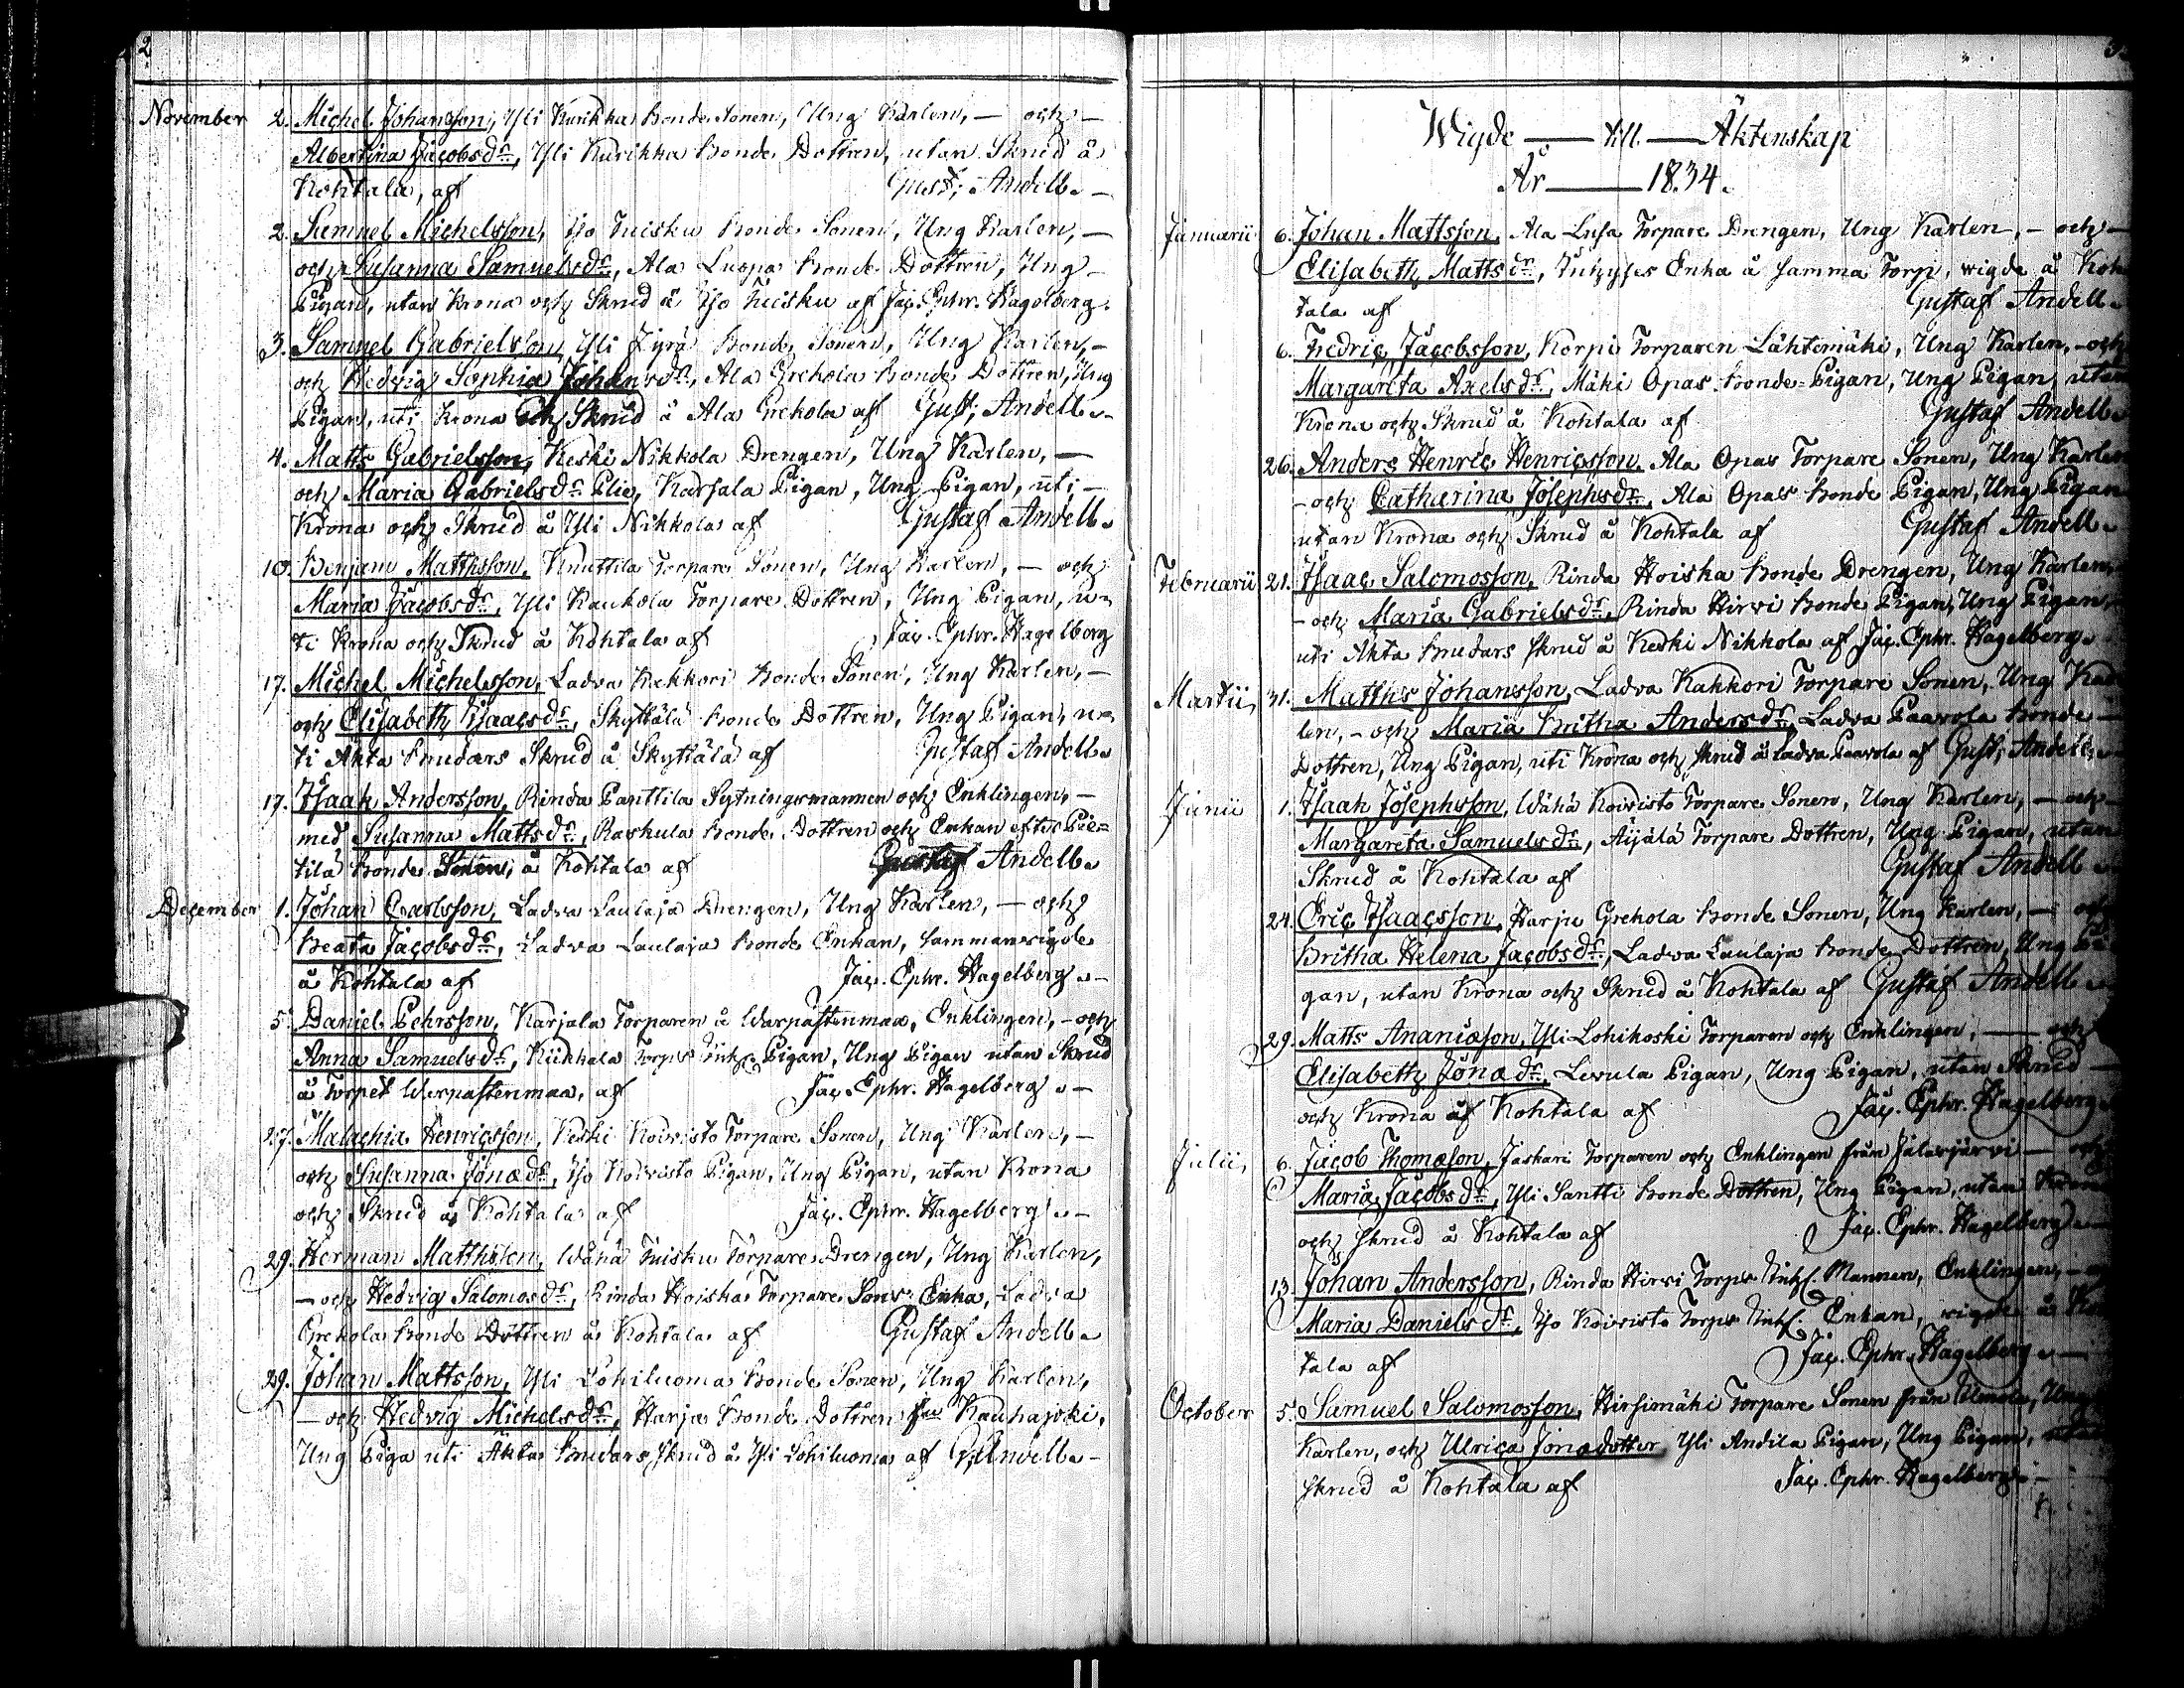 2
November 2. Michel Johansson, Yli Kurikka Bonde Sonen, Ung Karlen, — och —
Albertina Jacobsdr, Yli Kurikka Bonde Dottren, utan Skrud å
Kohtala, af Gust; Andell. —
2. Samuel Michelsson, Iso Tuisku Bonde Sonen, Ung Karlen, —
och Susanna Samuelsdr, Ala Luopa Bonde Dottren, Ung —
Pigan, utan Krona och Skrud å Iso Tuisku af Jac. Ephr. Hagelberg.
3. Samuel Gabrielsson, Yli Jyrä Bonde Sonen, Ung Karlen, —
och Hedvig Sophia Johansdr, Ala Grekola Bonde Dottren, Ung
Pigan, uti Krona och Skrud å Ala Grekola af Gust; Andell. —
4. Matts Gabrielsson, Keski Nikkola Drengen, Ung Karlen, —
och Maria Gabrielsdr Plie, Karsala Pigan, Ung Pigan, uti —
Krona och Skrud å Yli Nikkola af Gustaf Andell.
10. Benjam Matthsson, Knuttila Torpare Sonen, Ung Karlen, — och
Maria Jacobsdr, Yli Kaukola Torpare Dottren, Ung Pigan, u=
ti Krona och Skrud å Kohtala af Jac. Ephr. Hagelberg
17. Michel Michelsson, Ladva Kakkori Bonde Sonen, Ung Karlen, —
och Elisabeth Isaacsdr, Skyttälä Bonde Dottren, Ung Pigan, u=
ti Äkta Brudars Skrud å Skyttälä af Gustaf Andell.
17. Isaak Andersson, Rinda Panttila Sytningsmannen och Enklingen, —
med Susanna Mattsdr, Raskula Bonde Dottren och Enkan efter Pie=
tilä Bonde Sonen, å Kohtala af Gustaf Andell.
December 1. Johan Carlsson, Ladva Laulaja Drengen, Ung Karlen, — och
Beata Jacobsdr, Ladva Laulaja Bonde Enkan, sammanvigde
å Kohtala af Jac. Ephr. Hagelberg. —
5. Daniel Pehrsson, Karjala Torparen å Warpastenmaa, Enklingen, — och
Anna Samuelsdr, Kiikkala Torps Inhs. Pigan, Ung Pigan utan Skrud
å Torpet Warpastenmaa, af Jac. Ephr. Hagelberg. —
27. Malachia Henricsson, Keski Koivisto Torpare Sonen, Ung Karlen, —
och Susanna Jonædr, Iso Koivisto Pigan, Ung Pigan, utan Krona
och Skrud å Kohtala af Jac. Ephr. Hagelberg. —
29. Herman Matthsson, Wähä Tuisku Torpare Drengen, Ung Karlen,
— och Hedvig Salomosdr, Rinda Hoiska Torpare Sons Enka, Ladva
Grekola Bonde Dottren å Kohtala af Gustaf Andell.
29. Johan Mattsson, Yli Lohiluoma Bonde Sonen, Ung Karlen,
— och Hedvig Michelsdr, Harja Bonde Dottren från Kauhajoki,
Ung Piga uti Äkta Brudars Skrud å Yli Lohiluoma af G. Andell. —
3.
Wigde — till — Äktenskap
År — 1834.
Januarii 6. Johan Mattsson, Ala Lusa Torpare Drengen, Ung Karlen, — och —
Elisabeth Mattsdr, Inhyses Enka å samma Torp, wigde å Koh
tala af Gustaf Andell.
6. Fredric Jacobsson, Korpi Torparen Lähtemäki, Ung Karlen, — och
Margareta Axelsdr, Mäki Opas Bonde=Pigan, Ung Pigan, utan
Krona och Skrud å Kohtala af Gustaf Andell.
26. Anders Henric Henricsson, Ala Opas Torpare Sonen, Ung Karlen
— och Catharina Josephsdr, Ala Opas Bonde Pigan, Ung Pigan
utan Krona och Skrud å Kohtala af Gustaf Andell.
Februarii 21. Isaac Salomosson, Rinda Hoiska Bonde Drengen, Ung Karlen,
— och Maria Gabrielsdr, Rinda Hirvi Bonde Pigan, Ung Pigan,
uti Äkta Brudars Skrud å Keski Nikkola af Jac. Ephr. Hagelberg.
Martii 31. Matths Johansson, Ladva Kakkori Torpare Sonen, Ung Kar
len, — och Maria Britha Andersdr, Ladva Paavola Bonde —
Dottren, Ung Pigan, uti Krona och Skrud å Ladva Paavola af Gust; Andell.
Junii 1. Isaak Josephsson, Wähä Koivisto Torpare Sonen, Ung Karlen, — och
Margareta Samuelsdr, Äijälä Torpare Dottren, Ung Pigan, utan
Skrud å Kohtala af Gustaf Andell.
24. Eric Isaacsson, Harju Grekola Bonde Sonen, Ung Karlen, — och
Britha Helena Jacobsdr, Ladva Laulaja Bonde Dottren, Ung Pi
gan, utan Krona och Skrud å Kohtala af Gustaf Andell.
29. Matts Ananiæson, Yli-Lohikoski Torparen och Enklingen, — och
Elisabeth Jonædr, Levula Pigan, Ung Pigan, utan Skrud —
och Krona å Kohtala af Jac. Ephr. Hagelberg
Julii 6. Jacob Thomæson, Jaskari Torparen och Enklingen från Jalasjärvi — och
Maria Jacobsdr, Yli Santti Bonde Dottren, Ung Pigan, utan Krona
och Skrud å Kohtala af Jac. Ephr. Hagelberg. —
13. Johan Andersson, Rinda Hirvi Torps Inhs. Mannen, Enklingen, —
Maria Danielsdr, Iso Koivisto Torps Inhs. Enkan, wigde å Ko
tala af Jac. Ephr. Hagelberg. —
October 5. Samuel Salomosson, Hirsimäki Torpare Sonen från Ilmola, Ung
Karlen, och Ulrica Jonædotter Yli Andila Pigan, Ung Pigan, utan
Skrud å Kohtala af Jac. Ephr. Hagelberg. —